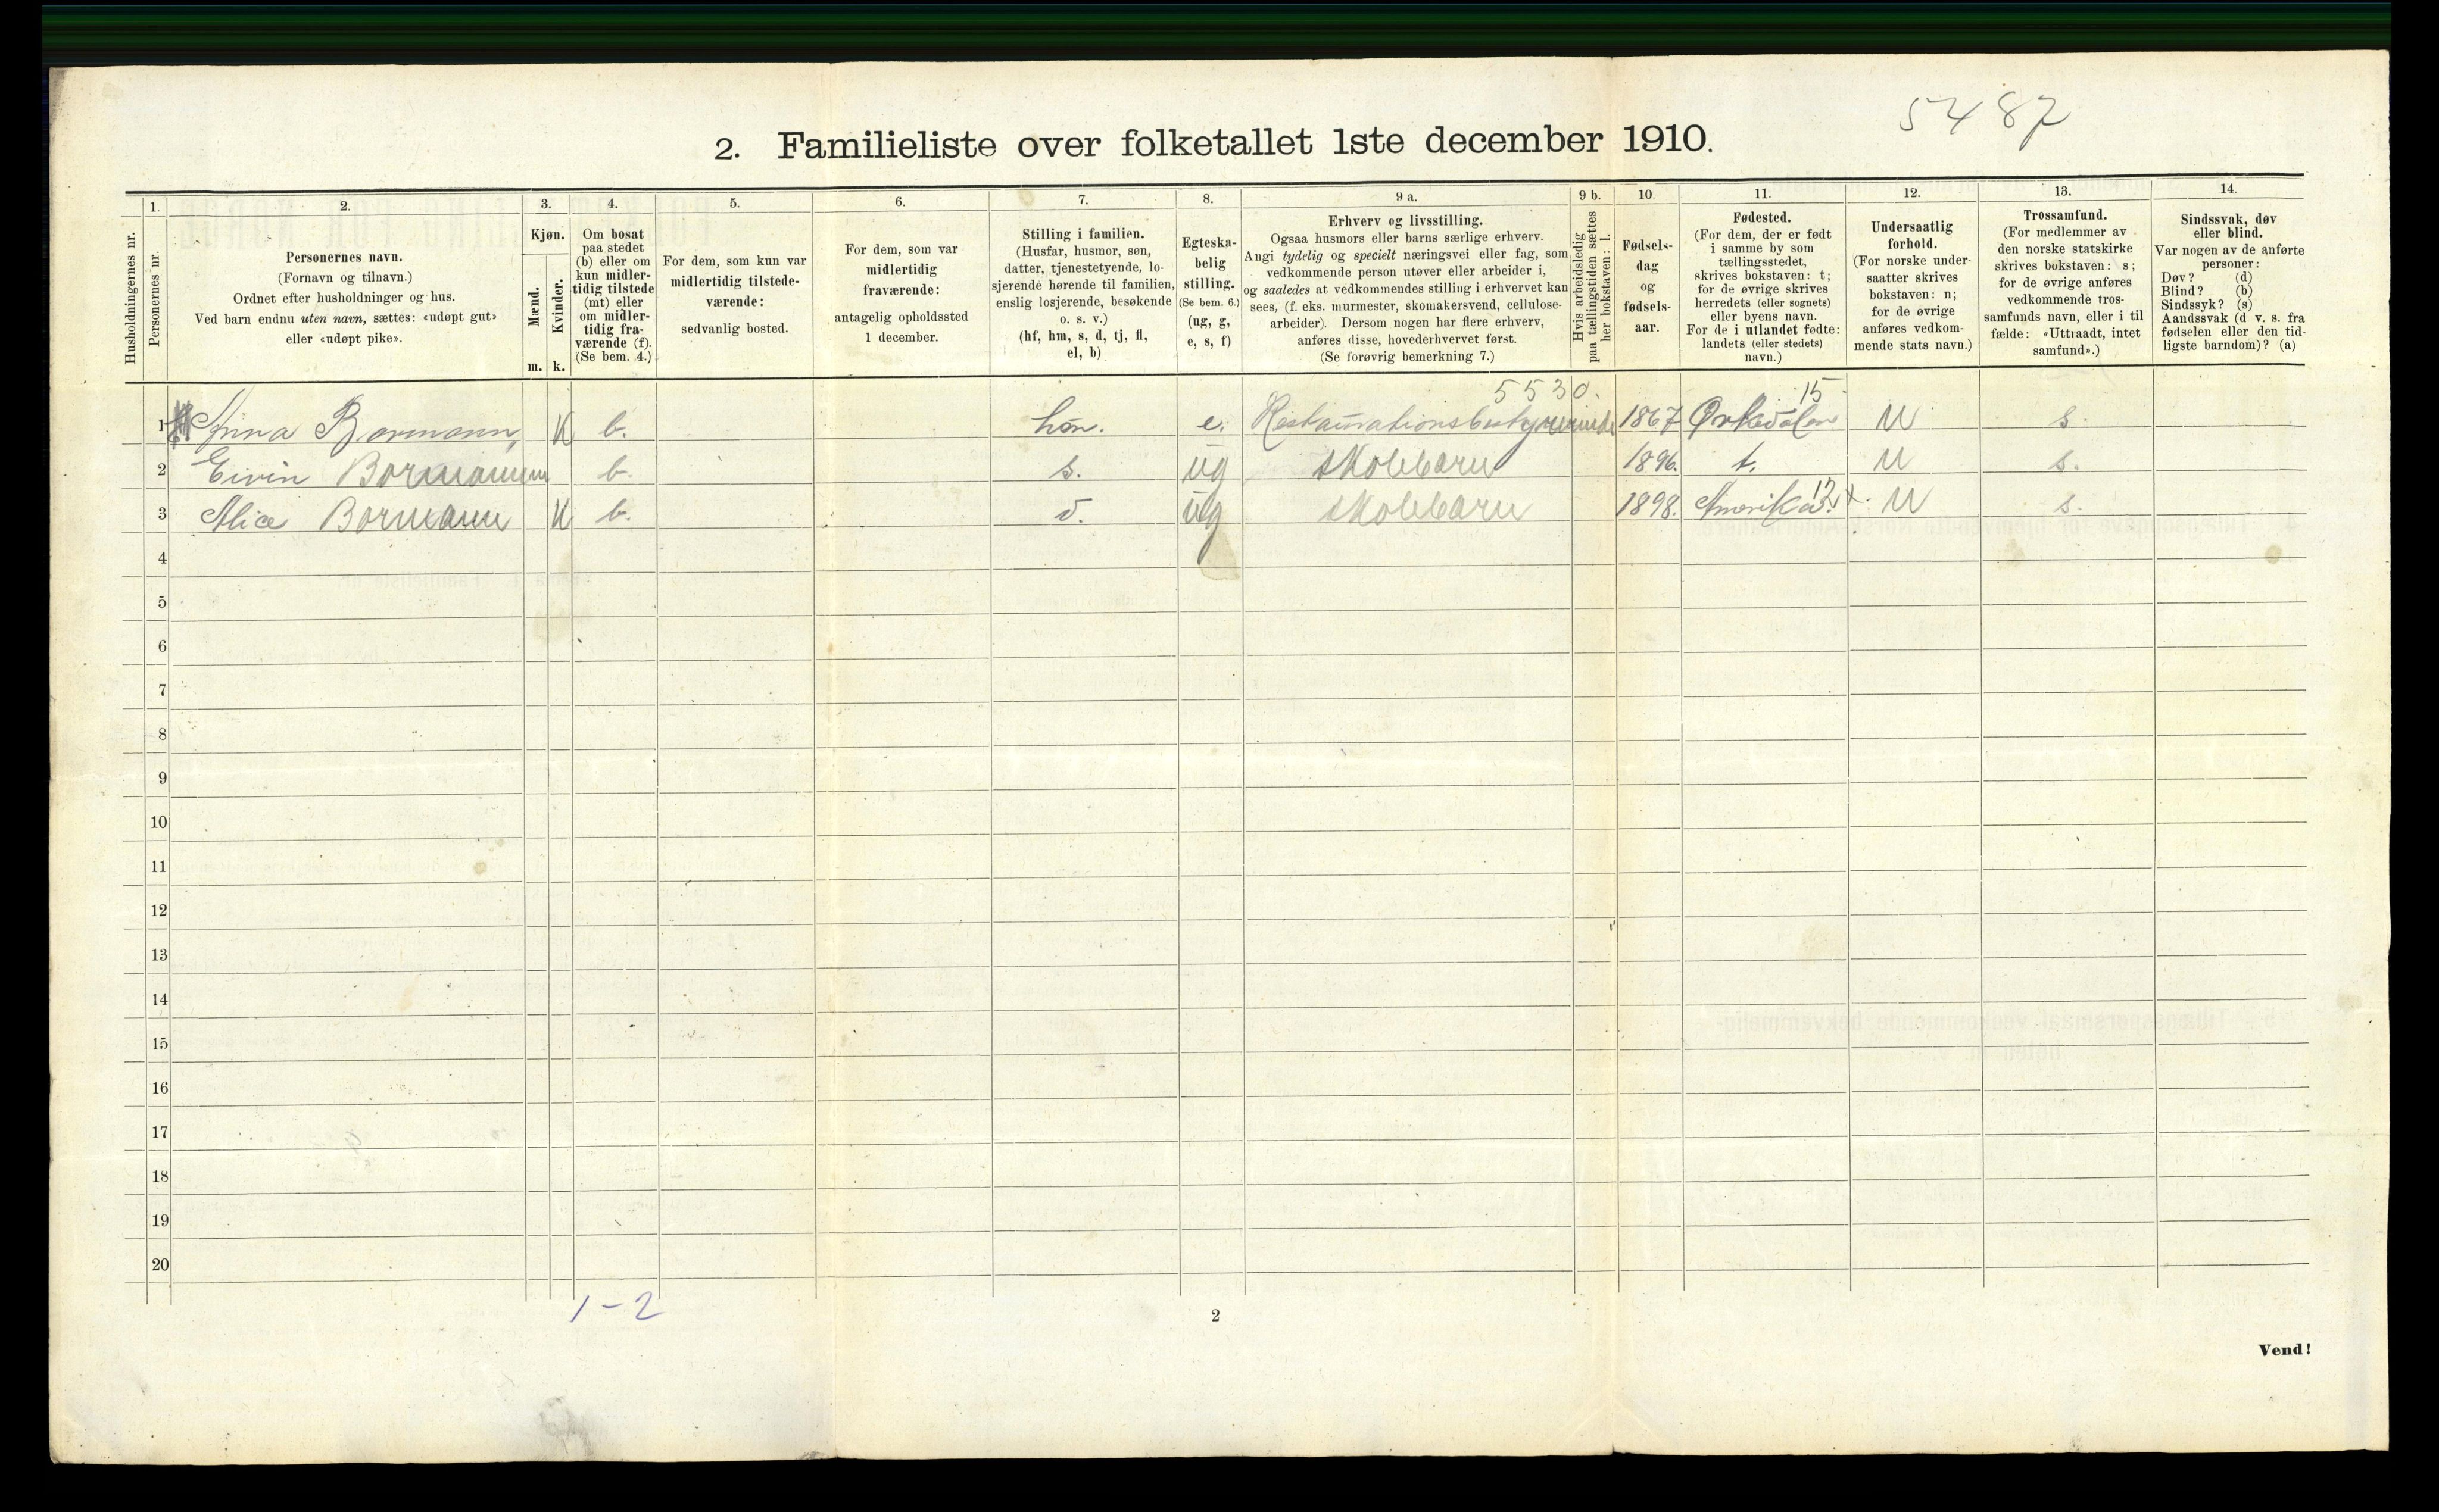 5487
2. Familieliste over folketallet 1ste december 1910.
Husholdningernes nr.
1.
Personernes nr.
2.
Personernes navn.
(Fornavn og tilnavn.)
Ordnet efter husholdninger og hus.
Ved barn endnu uten navn, sættes: «udøpt gut»
eller «udøpt pike».
3.
Kjøn.
Mænd.
Kvinder.
m. k.
4.
Om bosat
paa stedet
(b) eller om
kun midler-
tidig tilstede
(mt) eller
om midler-
tidig fra-
værende (f).
(Se bem. 4.)
5.
For dem, som kun var
midlertidig tilstede-
værende:
sedvanlig bosted.
6.
For dem, som var
midlertidig
fraværende:
antagelig opholdssted
1 december.
7.
Stilling i familien.
(Husfar, husmor, søn,
datter, tjenestetyende, lo-
sjerende hørende til familien,
enslig losjerende, besøkende
o. s. v.)
(hf, hm, s, d, tj, fl,
el, b)
8.
Egteska-
belig
stilling.
(Se bem. 6.)
(ug, g,
e, s, f)
9 a.
Erhverv og livsstilling.
Ogsaa husmors eller barns særlige erhverv.
Angi tydelig og specielt næringsvei eller fag, som
vedkommende person utøver eller arbeider i,
og saaledes at vedkommendes stilling i erhvervet kan
sees, (f. eks. murmester, skomakersvend, cellulose-
arbeider). Dersom nogen har flere erhverv,
anføres disse, hovederhvervet først.
(Se forøvrig bemerkning 7.)
9 b.
Hvis arbeidsledig
paa tællingstiden sættes
her bokstaven: l.
10.
Fødsels-
dag
og
fødsels-
aar.
11.
Fødested.
(For dem, der er født
i samme by som
tællingsstedet,
skrives bokstaven: t;
for de øvrige skrives
herredets (eller sognets)
eller byens navn.
For de i utlandet fødte:
landets (eller stedets)
navn.)
12.
Undersaatlig
forhold.
(For norske under-
saatter skrives
bokstaven: n;
for de øvrige
anføres vedkom-
mende stats navn.)
13.
Trossamfund.
(For medlemmer av
den norske statskirke
skrives bokstaven: s;
for de øvrige anføres
vedkommende tros-
samfunds navn, eller i til
fælde: «Uttraadt, intet
samfund».)
14.
Sindssvak, døv
eller blind.
Var nogen av de anførte
personer:
Døv? (d)
Blind? (b)
Sindssyk? (s)
Aandssvak (d v. s. fra
fødselen eller den tid-
ligste barndom)? (a)
5530. 15
1 Anna Bormann, K b. hm. e. Restaurationsbestyrerinde 1867 Ørkedalen n s.
2 Eivin Bormann m b. s. ug skolebarn 1896. t. n s.
3 Alice Bormann K b. d. ug skolebarn 1898. Amerika. n s.
4
5
6
7
8
9
10
11
12
13
14
15
16
17
18
19
20
1-2
2
Vend!